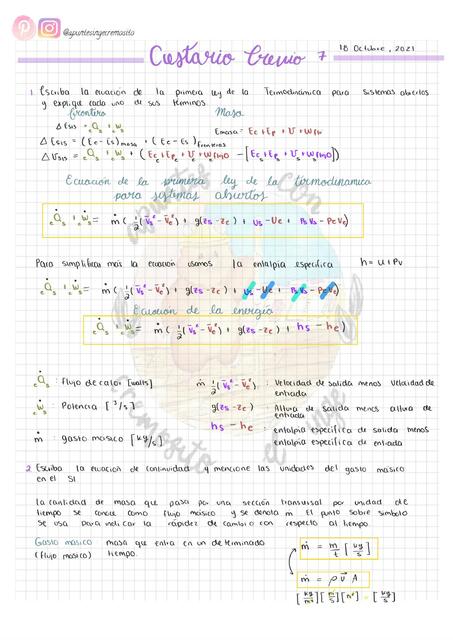 @apuntesingecremosito
Cuestario Previo 7
18 Octubre, 2021
1 Escriba la ecuación de la primera ley de la Termodinámica para sistemas abiertos
y explique cada uno de sus términos.
Frontera Masa
ΔEsis = eQ̇s + eẆs
Emasa = Ec + Ep + U + Wflu
ΔEsis = (Ee - Es)masa + (Ee - Es)fronteras
ΔUsis = eQ̇s + eẆs + (Ece + Epe + Ue + Wflujo - [Ecs + Eps + Us + Wflujo])
Ecuación de la primera ley de la termodinamica
para sistemas abiertos
eQ̇s + eẆs = ṁ (½(v̄s² - v̄e²) + g(zs - ze) + us - ue + Psvs - Peve)
Para simplificar más la ecuación usamos la entalpia especifica h = u + Pv
eQ̇s + eẆs = ṁ (½(v̄s² - v̄e²) + g(zs - ze) + us - ue + Psvs - Peve)
Ecuación de la energía
eQ̇s + eẆs = ṁ (½(v̄s² - v̄e²) + g(zs - ze) + hs - he)
eQ̇s : Flujo de calor [watts] ṁ ½(v̄s² - v̄e²) : Velocidad de salida menos velocidad de
entrada
eẆs : Potencia [J/s] g(zs - ze) : Altura de salida menos altura de
entrada
ṁ : gasto másico [kg/s] hs - he : entalpia especifica de salida menos
entalpia especifica de entrada
2 Escriba la ecuación de continuidad y mencione las unidades del gasto másico
en el SI
La cantidad de masa que pasa por una sección transversal por unidad de
tiempo se conoce como flujo másico y se denota ṁ El punto sobre símbolo
se usa para indicar la rápidez de cambio con respecto al tiempo.
Gasto másico masa que entra en un determinado
(flujo másico) tiempo.
ṁ = m/t [kg/s]
ṁ = ρ v̄ A
[kg/m³][m/s][m²] = [kg/s]
apuntes con
cremosito el